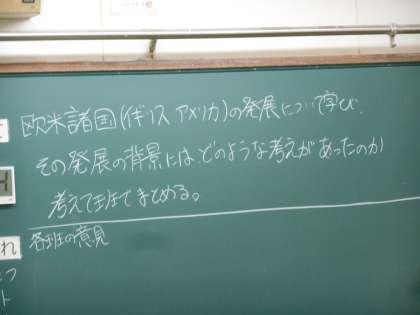 欧米諸国(イギリス アメリカ)の発展について学び、
その発展の背景には、どのような考えがあったのか
考えて班でまとめる。
各班の意見
れ
つ
ト